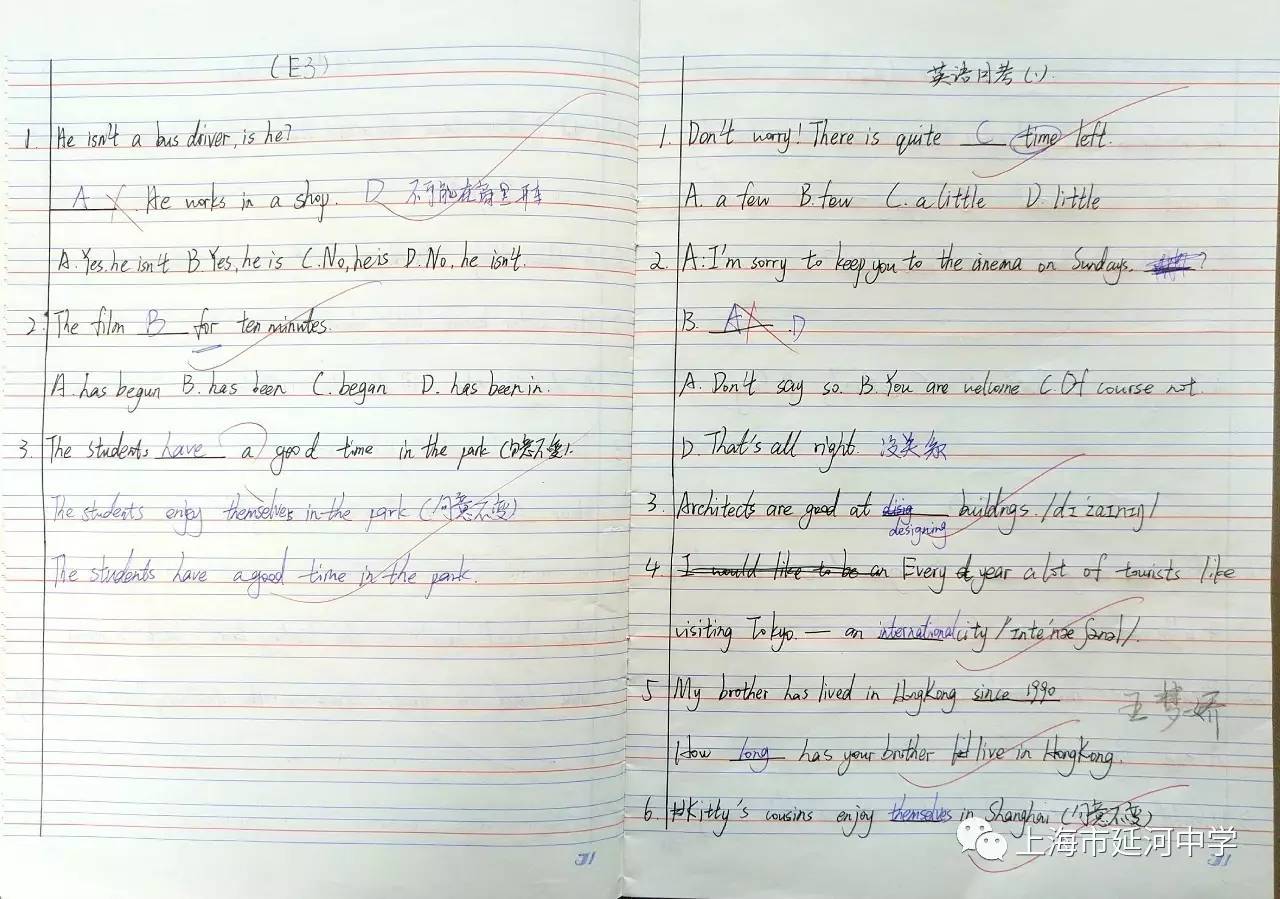 (E3)
1. He isn't a bus driver, is he?
A. He works in a shop. D 不可能在商里开车
A. Yes, he isn't B. Yes, he is C. No, he is D. No, he isn't.
2. The film B for ten minutes.
A. has begun B. has been C. began D. has been in.
3. The students have a good time in the park (句意不变).
The students enjoy themselves in the park (句意不变)
The students have a good time in the park.
英语日考(1).
1. Don't worry! There is quite C time left.
A. a few B. few C. a little D. little
2. A: I'm sorry to keep you to the cinema on Sundays. ?
B. A D
A. Don't say so. B. You are welcome C. Of course not.
D. That's all right. 没关系
3. Architects are good at buildings. /dɪˈzaɪnɪŋ/
designing
4. I would like to be an Every year a lot of tourists like
visiting Tokyo — an international city /ˌɪntəˈnæʃənəl/.
5 My brother has lived in HongKong since 1990
How long has your brother live in HongKong.
6. Kitty's cousins enjoy themselves in Shanghai (句意不变)
王梦娇
上海市延河中学